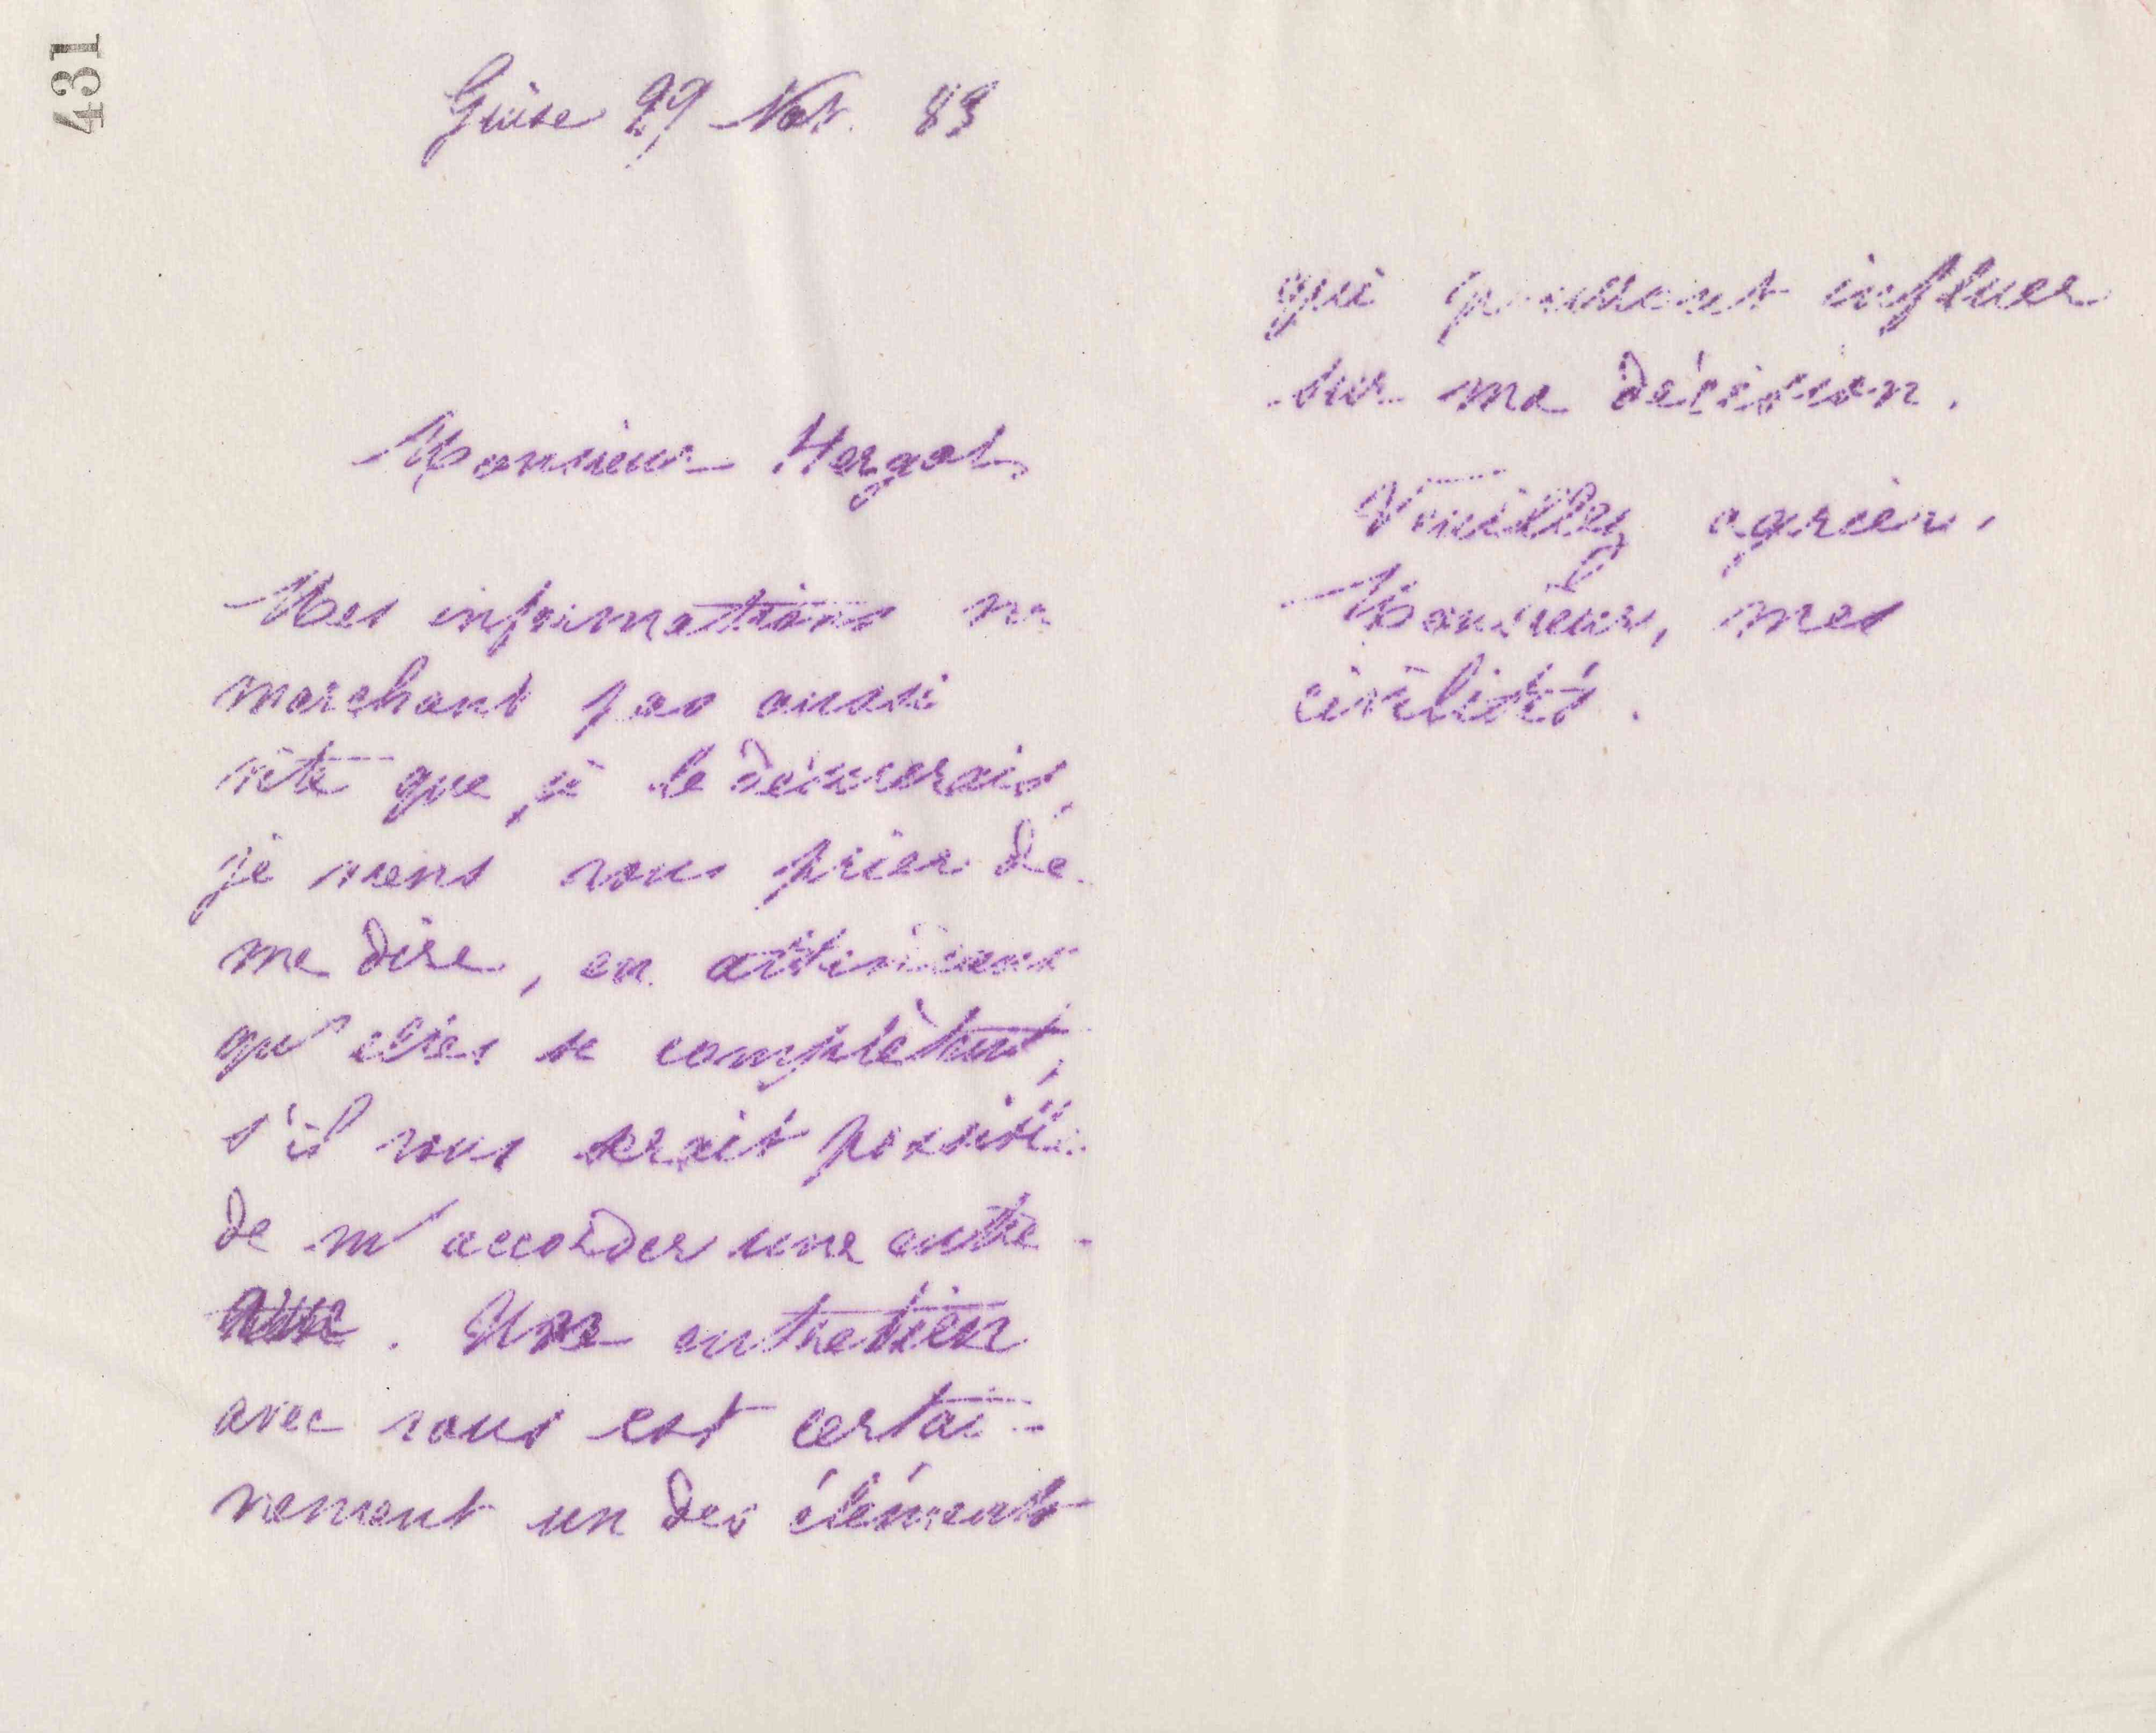 431
Guise 29 Nov. 83
Monsieur Hergot
Mes informations ne
marchant pas aussi
vite que je le désirerais,
je viens vous prier de
me dire, en attendant
qu'elles se complètent,
s'il vous serait possible
de m'accorder une entre-
vue. Un entretien
avec vous est certai-
nement un des éléments
qui pourront influer
sur ma décision.
Veuillez agréer,
Monsieur, mes
civilités.